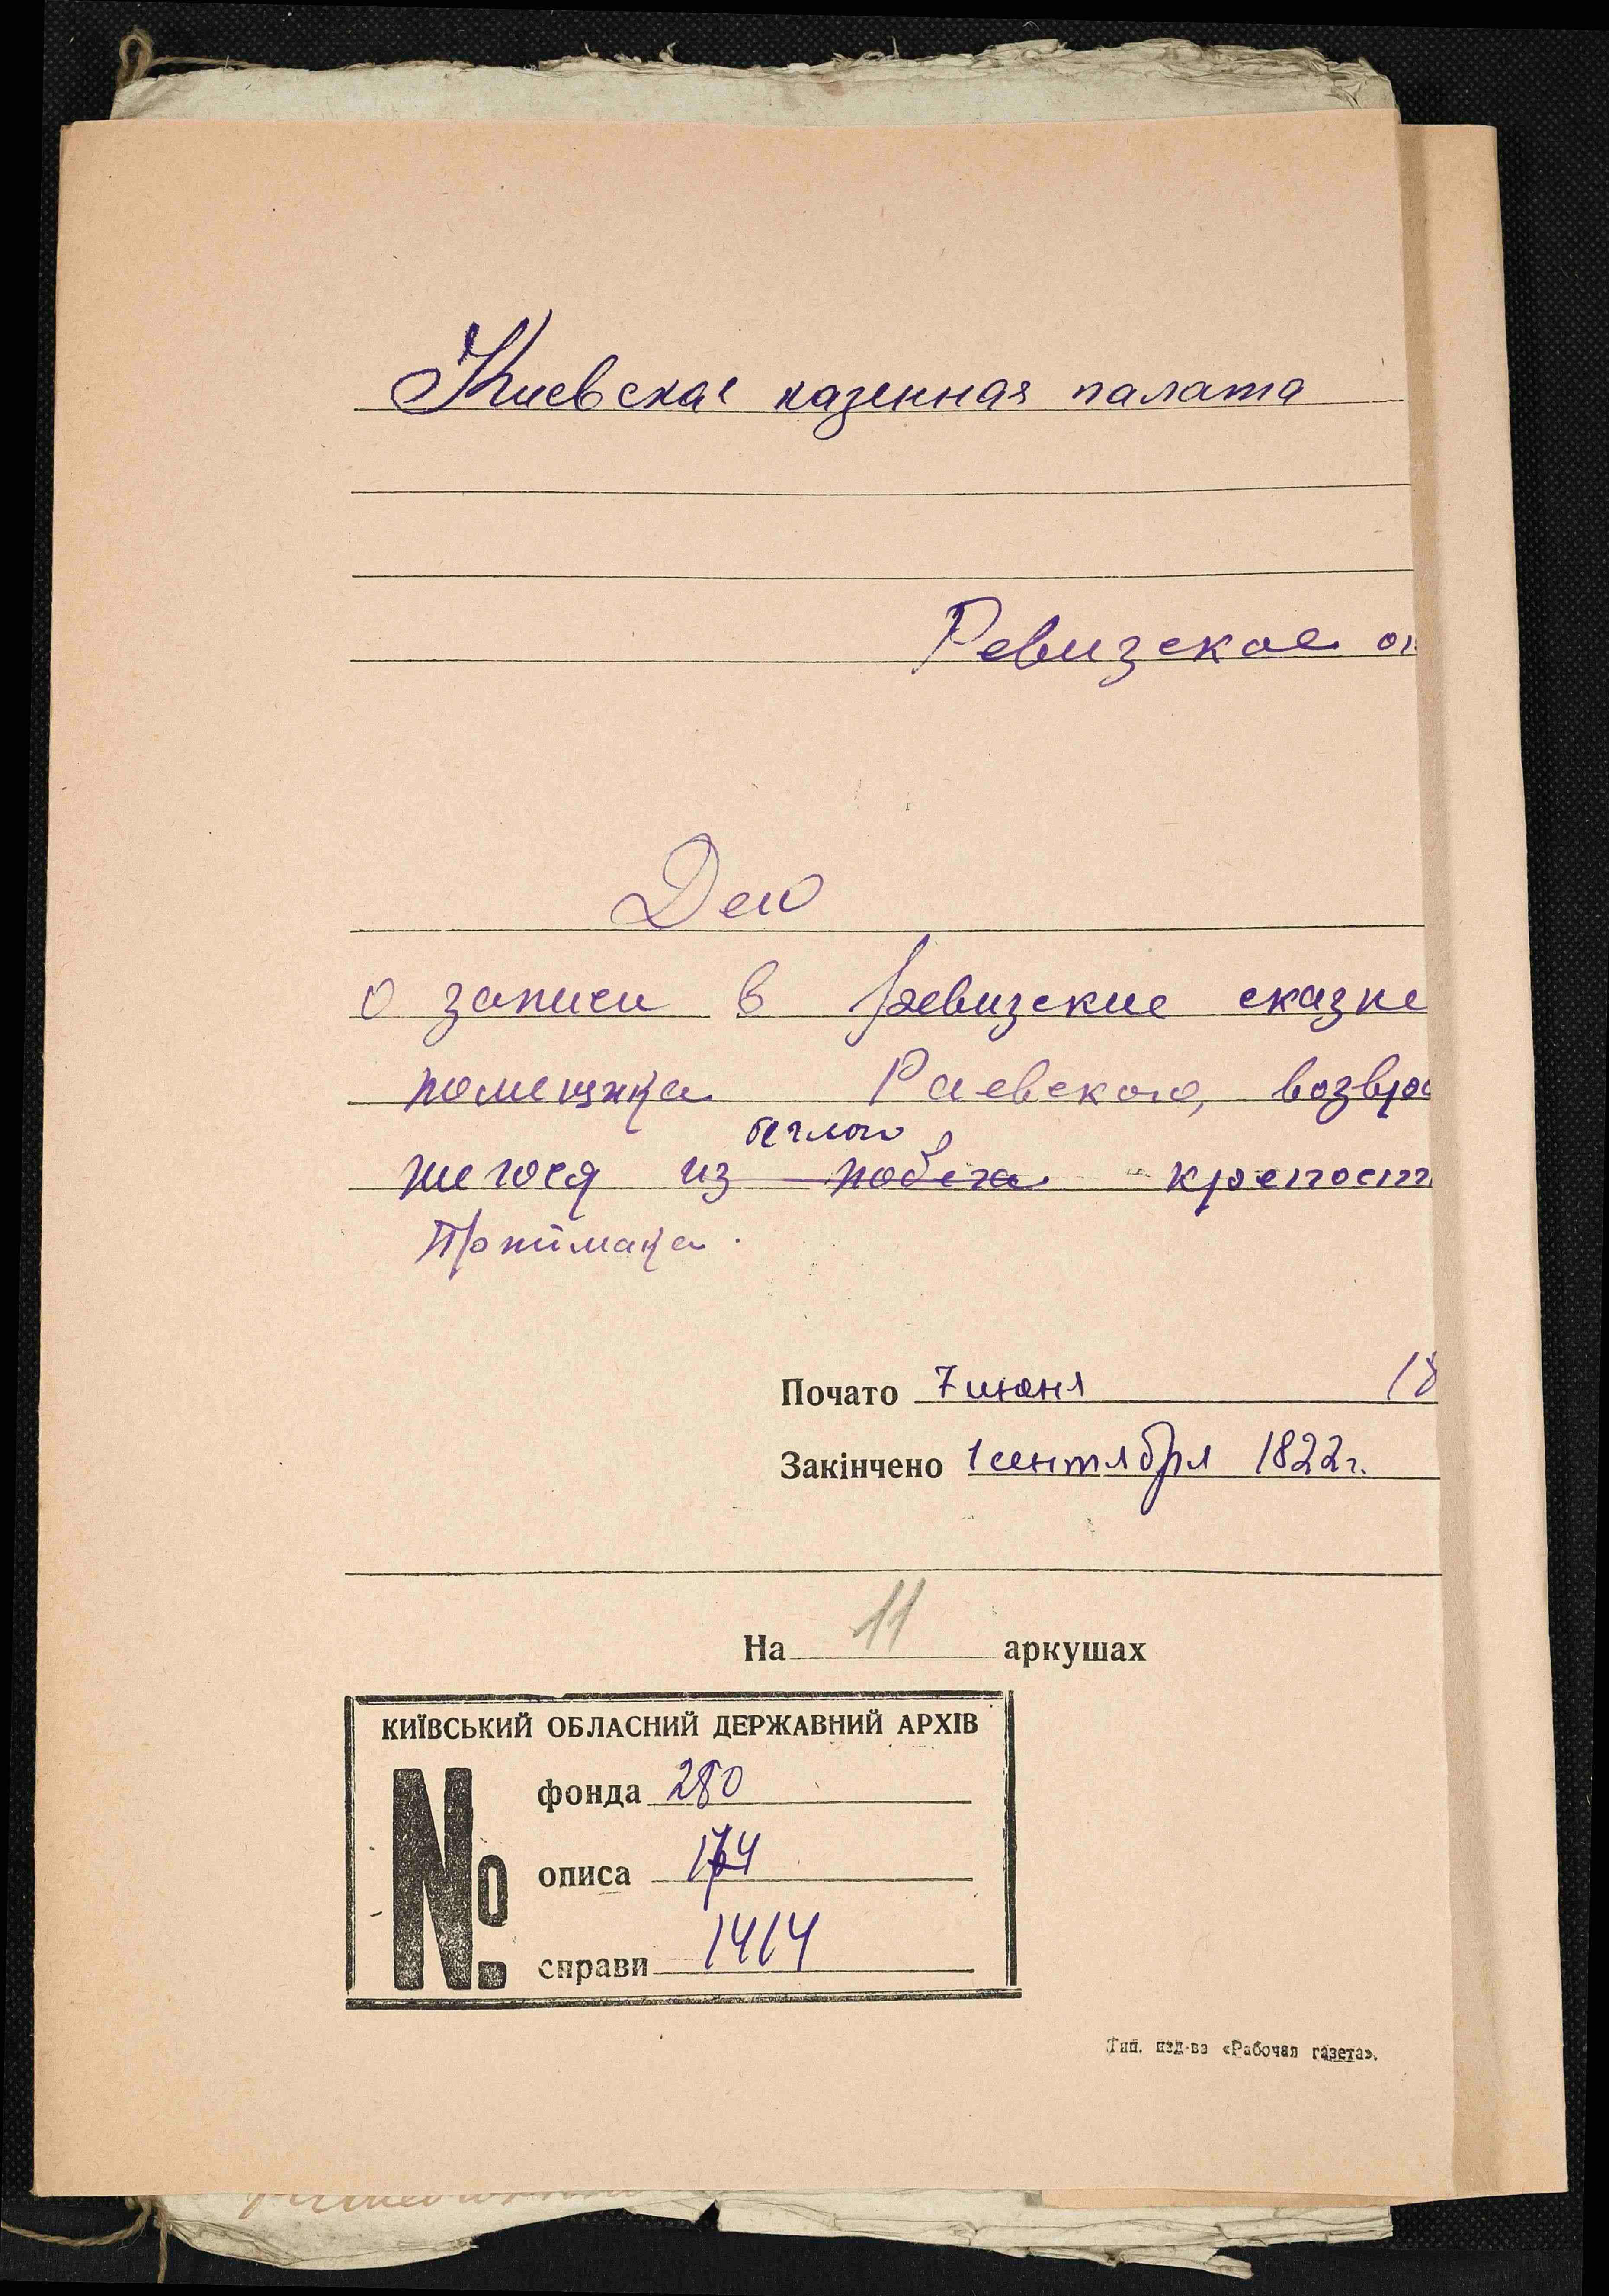 Киевская казенная палата
Ревизское от
Дело
о записи в ревизские сказке
помещика Раевского, возвра
беглого
шегося из побега крепост
Приймака.
Почато 7 июня 18
Закінчено 1 сентября 1822 г.
На 11 аркушах
КИЇВСЬКИЙ ОБЛАСНИЙ ДЕРЖАВНИЙ АРХІВ
№ фонда 280
описа 174
справи 1414
Тип. изд-ва «Рабочая газета».